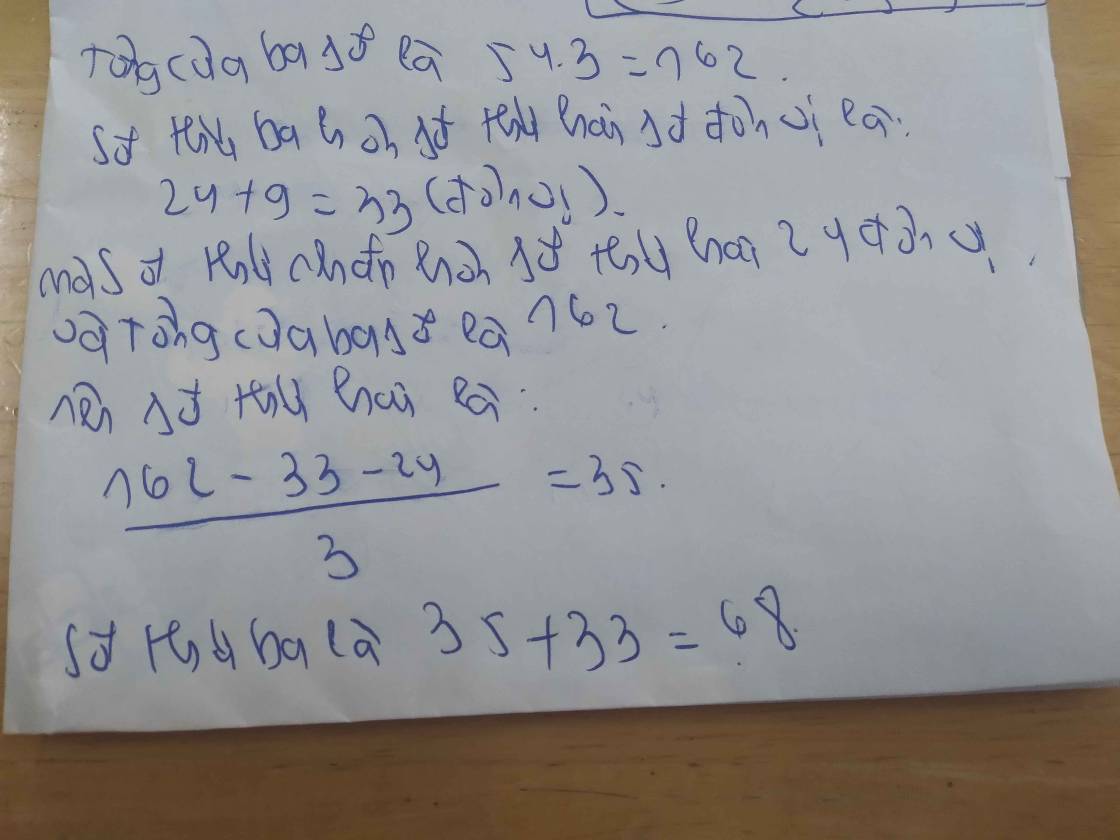 Tổng của ba số là 54.3 = 162.
Số thứ ba hơn số thứ hai số đơn vị là:
24 + 9 = 33 (đơn vị).
mà số thứ nhất hơn số thứ hai 24 đơn vị.
và tổng của ba số là 162.
nên số thứ hai là:
162 - 33 - 24 = 35.
3
Số thứ ba là 35 + 33 = 68.